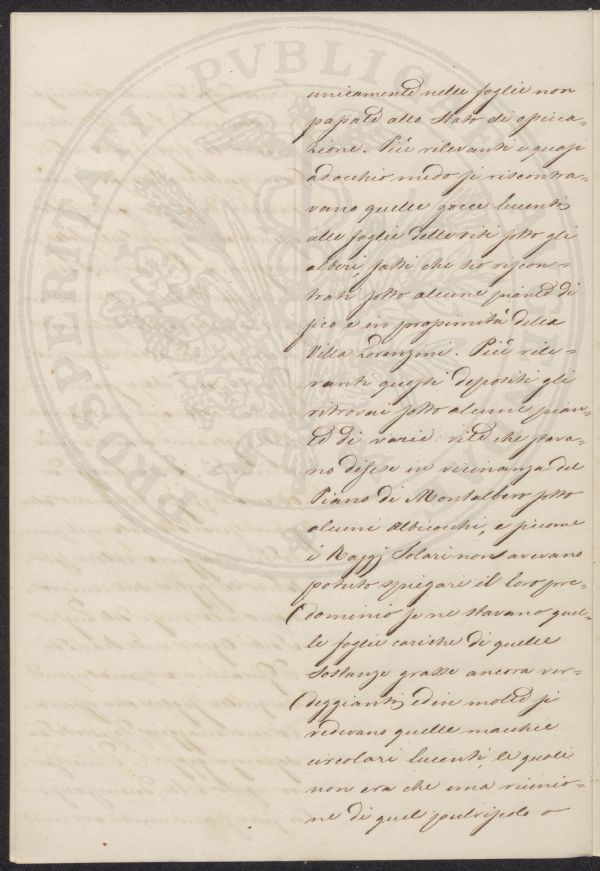 PROSPERITATI PVBLICAE
unicamente nelle foglie non
passate allo stato di essicca=
zione. Più rilevanti e quasi
ad occhio nudo si riscontra=
vano quelle gocce lucenti
alle foglie delle viti sotto gli
alberi, fatti che ho riscon=
trati sotto alcune piante di
fico e in prossimità della
Villa Lorenzoni. Più rile=
vanti questi depositi gli
ritrovai sotto alcune pian=
te di varie vite che stava=
no difese in vicinanza del
Piano di Montalbero sotto
alcuni Albicocchi, e siccome
i Raggj Solari non avevano
potuto spiegare il loro pre=
dominio se ne stavano quel=
le foglie cariche di quelle
sostanze grasse ancora ver=
deggianti, ed in molte si
vedevano quelle macchie
circolari lucenti, le quali
non era che una riunio=
ne di quel pulviscolo o